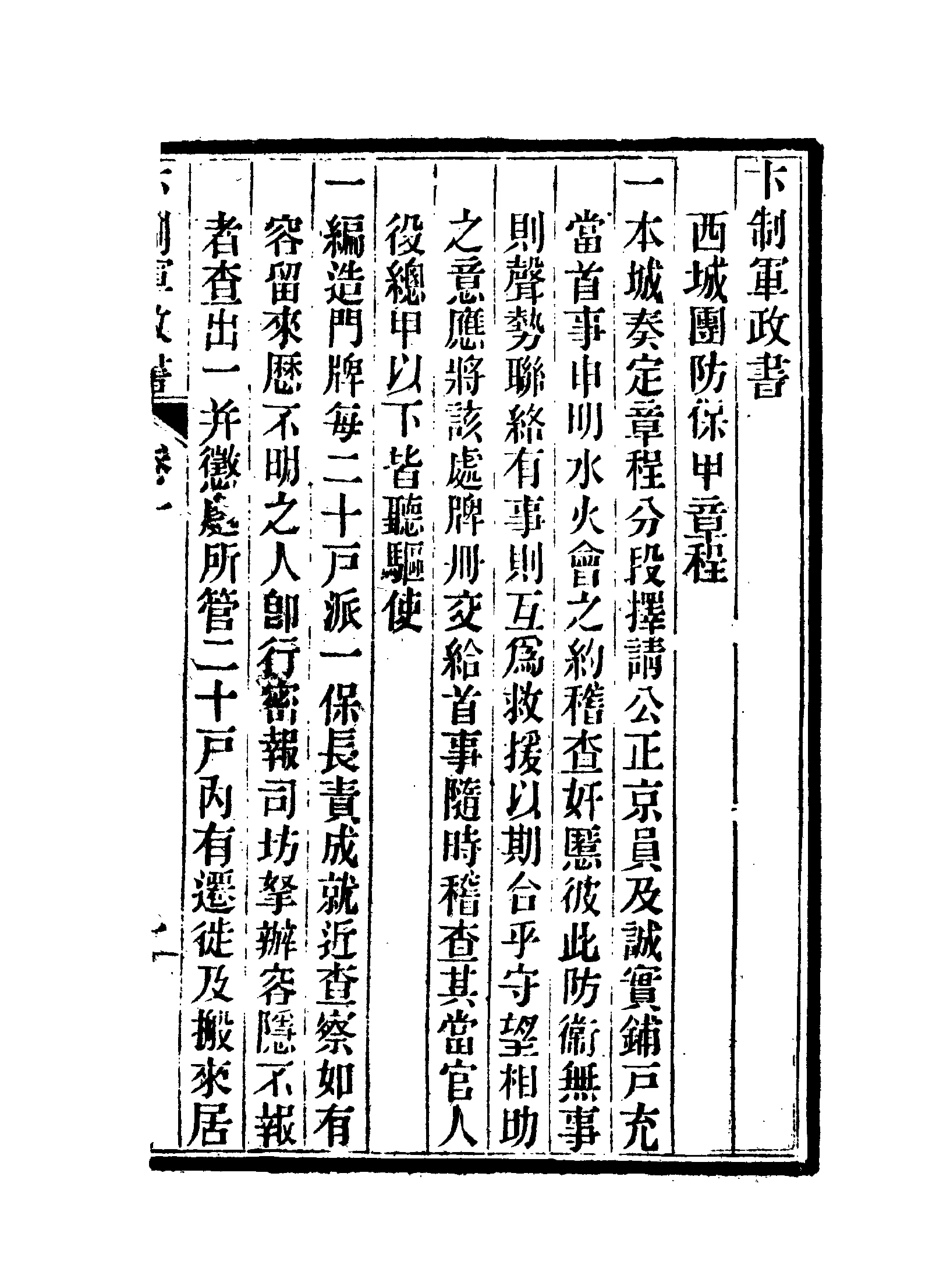 卞制軍政書
西城團防保甲章程
一本城奏定章程分段擇請公正京員及誠實鋪戸充
當首事申明水火會之約稽查奸慝彼此防衛無事
則聲勢聯絡有事則互爲救援以期合乎守望相助
之意應將該處牌冊交給首事隨時稽查其當官人
役總甲以下皆聽驅使
一編造門牌每二十戸派一保長責成就近查察如有
容留來歷不明之人卽行密報司坊拏辦容隱不報
者查出一并懲處所管二十戸內有遷徙及搬來居
卞制軍政書 卷一